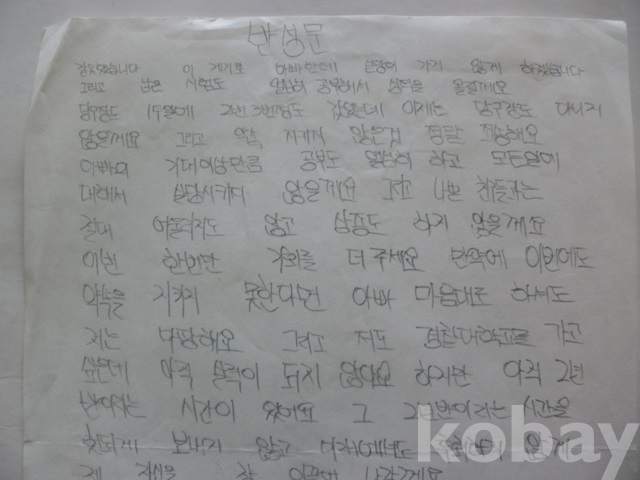 반성문
잘못했습니다 이 계기로 아빠한테 실망이 가지 않게 하겠습니다
그리고 남은 시험도 열심히 공부해서 성적을 올릴께요
당구장도 1주일에 2번 3번정도 갔었는데 이제는 당구장도 다니지
않을께요 그리고 약속 지키지 않은것 정말 죄송해요
아빠의 기대이상만큼 공부도 열심히 하고 모든일에
대해서 실망시키지 않을께요 그리고 나쁜 친구들과는
절대 어울리지도 않고 상종도 하지 않을께요
이번 한번만 기회를 더 주세요 만약에 이번에도
약속을 지키지 못한다면 아빠 마음대로 하셔도
저는 다당해요 그리고 저도 경찰대학교를 가고
싶은데 아직 실력이 되지 않아요 하지만 아직 2년
반이라는 시간이 있어요 그 2년반이라는 시간을
헛되게 보내지 않고 않게
제 자신을 잘 나갈께요
kobay